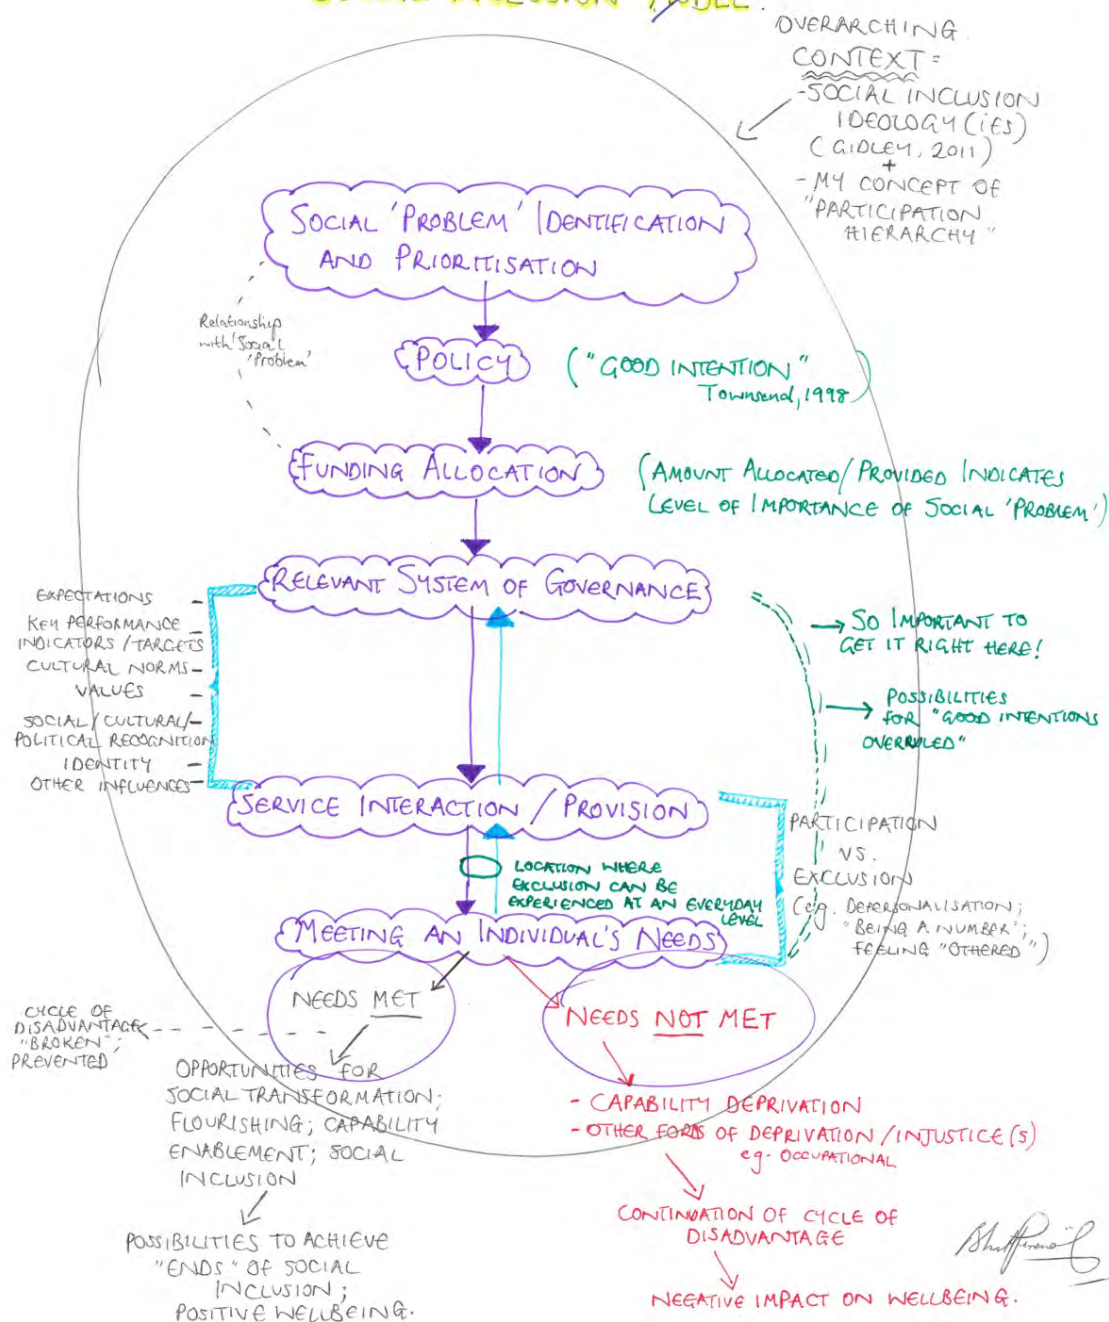 MODEL.
OVERARCHING
CONTEXT =
- SOCIAL INCLUSION
IDEOLOGY (iES)
(GIDLEY, 2011)
+
- MY CONCEPT OF
"PARTICIPATION
HIERARCHY"
SOCIAL 'PROBLEM' IDENTIFICATION
AND PRIORITISATION
Relationship
with 'Social
'Problem'
POLICY
("GOOD INTENTION"
Townsend, 1998)
FUNDING ALLOCATION
(AMOUNT ALLOCATED/PROVIDED INDICATES
LEVEL OF IMPORTANCE OF SOCIAL 'PROBLEM')
RELEVANT SYSTEM OF GOVERNANCE
EXPECTATIONS -
KEY PERFORMANCE -
INDICATORS / TARGETS
CULTURAL NORMS -
VALUES -
SOCIAL / CULTURAL / -
POLITICAL RECOGNITION
IDENTITY -
OTHER INFLUENCES -
→ SO IMPORTANT TO
GET IT RIGHT HERE!
→ POSSIBILITIES
FOR "GOOD INTENTIONS
OVERRULED"
SERVICE INTERACTION / PROVISION
LOCATION WHERE
EXCLUSION CAN BE
EXPERIENCED AT AN EVERYDAY
LEVEL
PARTICIPATION
VS.
EXCLUSION
(eg. DEPERSONALISATION;
"BEING A NUMBER";
FEELING "OTHERED")
MEETING AN INDIVIDUAL'S NEEDS
NEEDS MET
CYCLE OF
DISADVANTAGE
"BROKEN";
PREVENTED
OPPORTUNITIES FOR
SOCIAL TRANSFORMATION;
FLOURISHING; CAPABILITY
ENABLEMENT; SOCIAL
INCLUSION
POSSIBILITIES TO ACHIEVE
"ENDS" OF SOCIAL
INCLUSION;
POSITIVE WELLBEING.
NEEDS NOT MET
- CAPABILITY DEPRIVATION
- OTHER FORMS OF DEPRIVATION / INJUSTICE(S)
eg- OCCUPATIONAL
CONTINUATION OF CYCLE OF
DISADVANTAGE
NEGATIVE IMPACT ON WELLBEING.